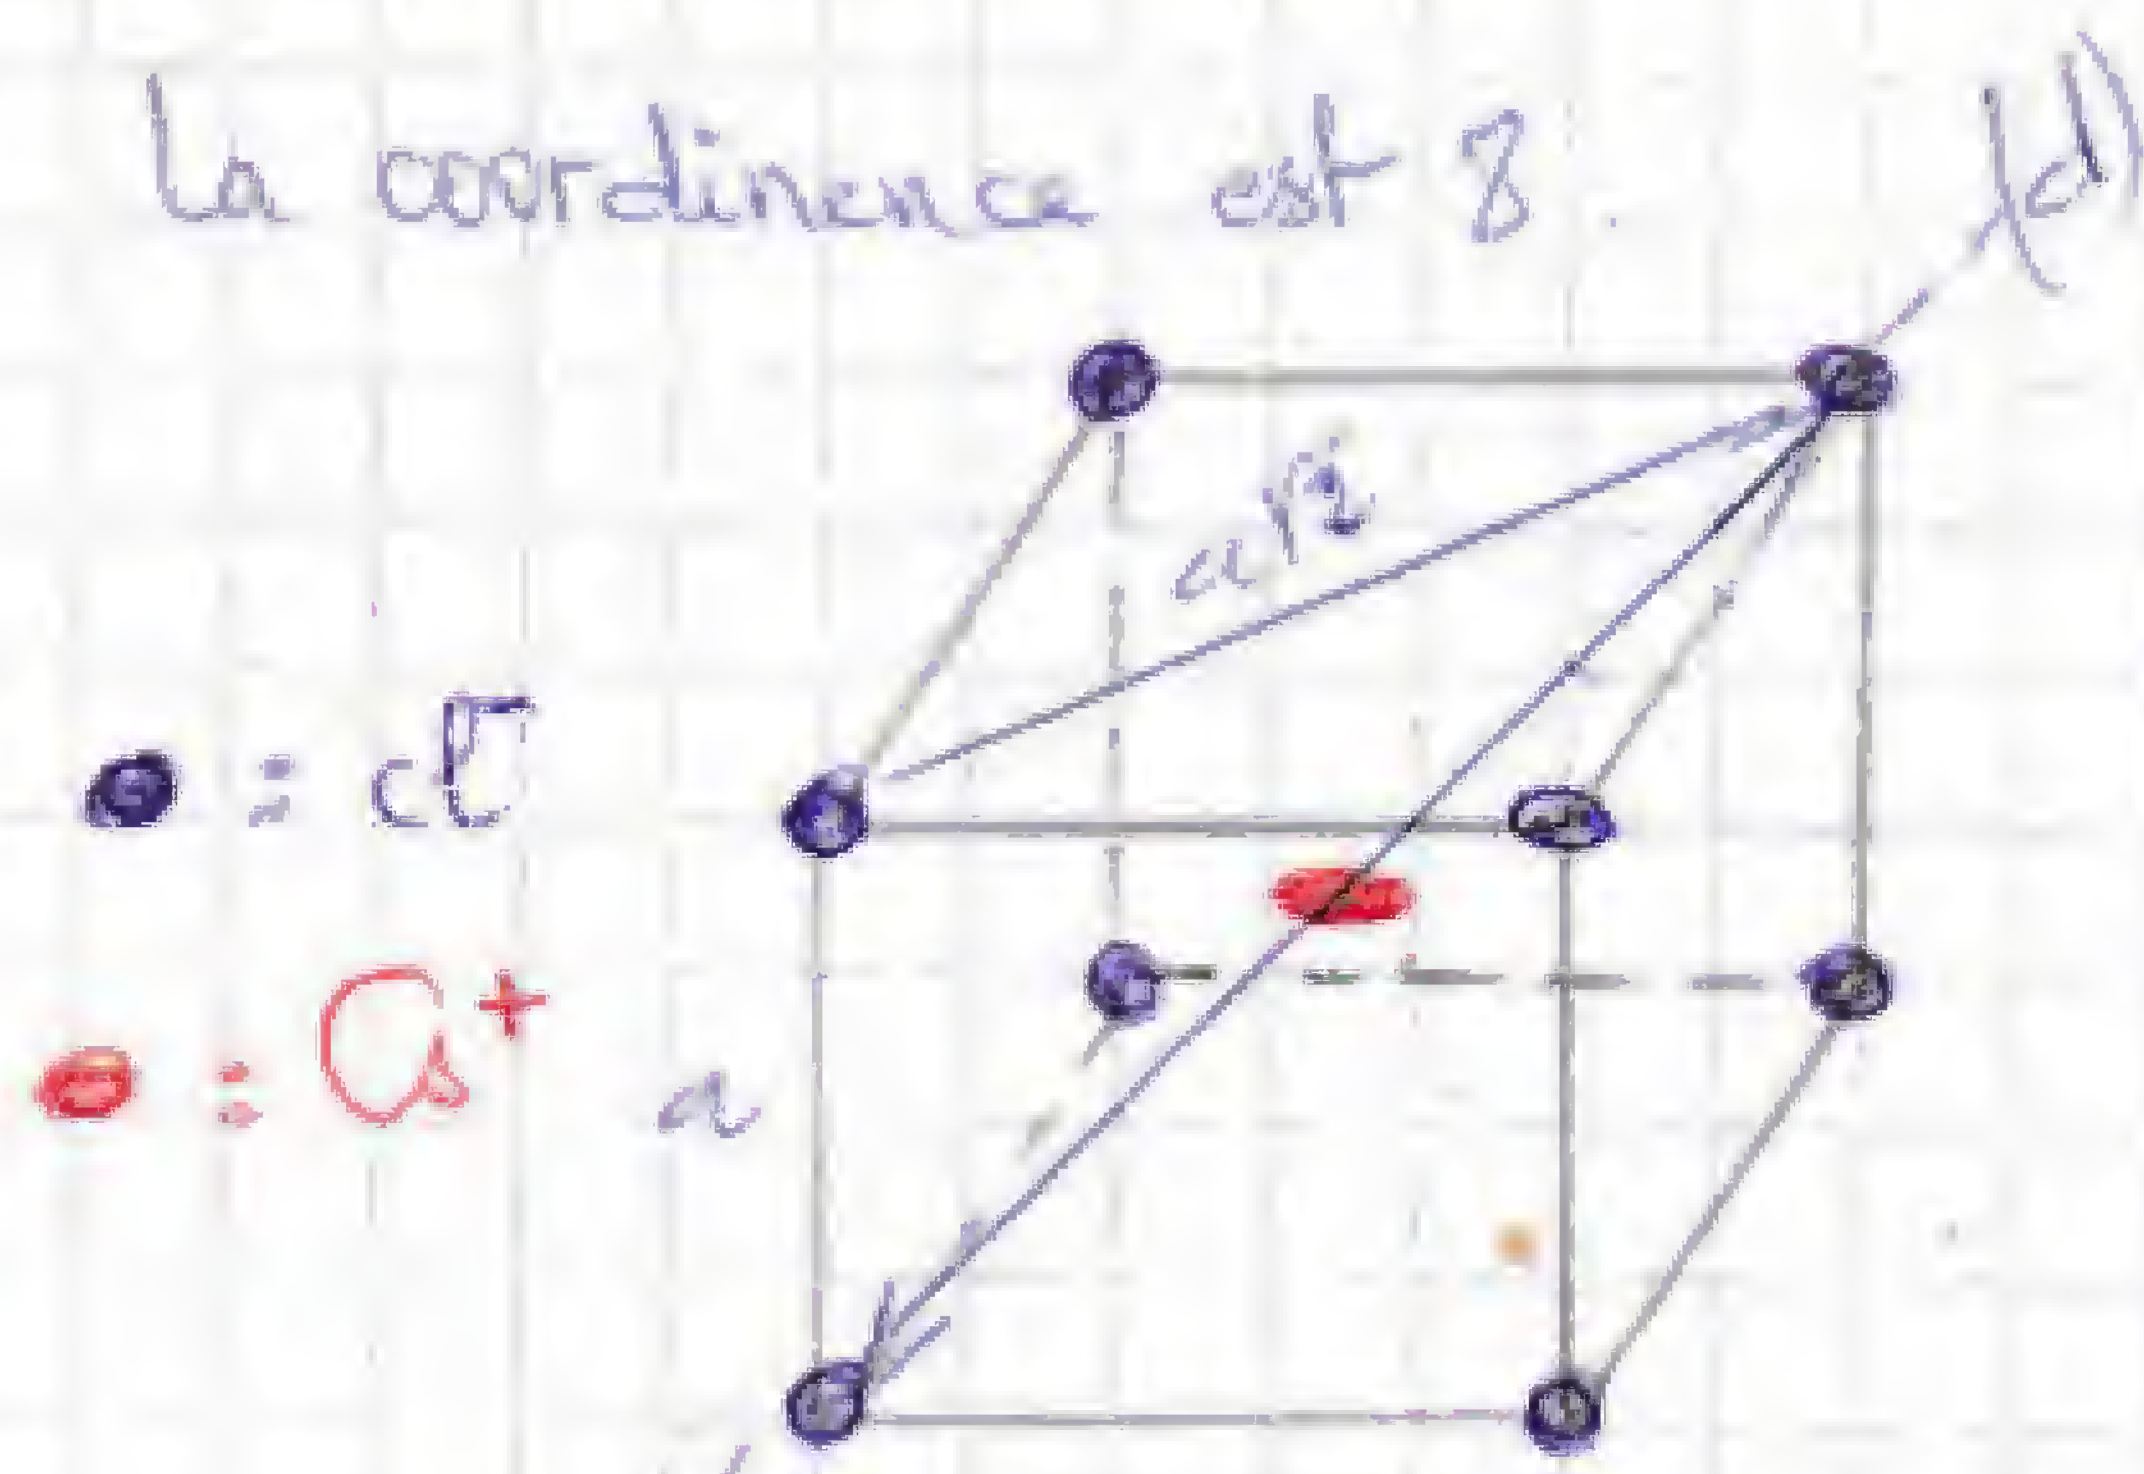 La coordinence est 8.
(d)
a√2
: Cl⁻
: Cs⁺
a